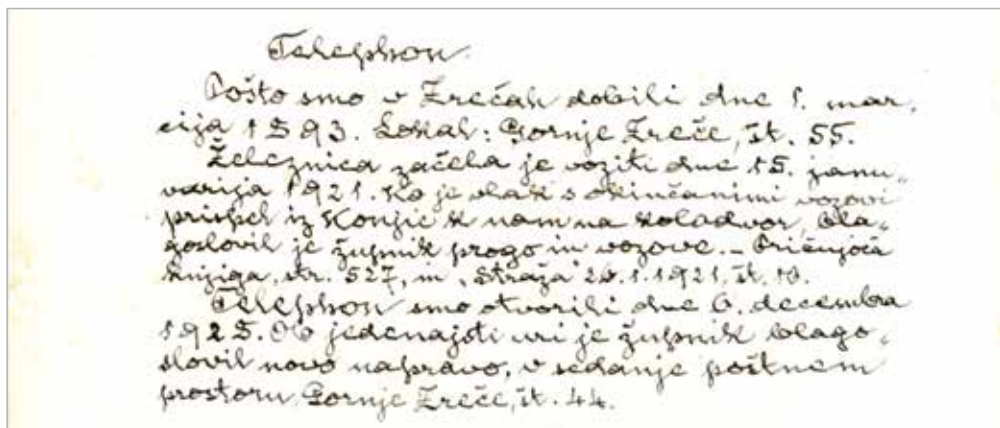 Telephon.
Pošto smo v Zrečah dobili dne 1. mar,
cija 1893. Lokal: Gornje Zreče, št. 55.
Železnica začela je voziti dne 15. janu,
varija 1921. Ko je vlak s okinčanimi vozovi
prispel iz Konjic k nam na kolodvor, bla,
goslovil je župnik progo in vozove. – Pričujoča
knjiga, str. 527, in „Straža" 1.1921, št. 10.
Telephon smo otvorili dne 6. decembra
1925. Ob jedenajsti uri je župnik blago,
slovil novo napravo, v sedanje poštnem
prostoru, Gornje Zreče, št. 44.